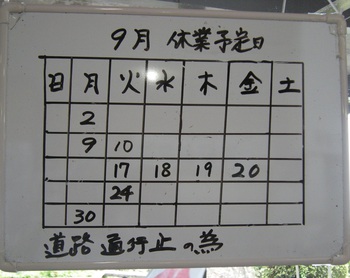 9月 休業予定日
日 月 火 水 木 金 土
2
9 10
17 18 19 20
24
30
道路通行止の為